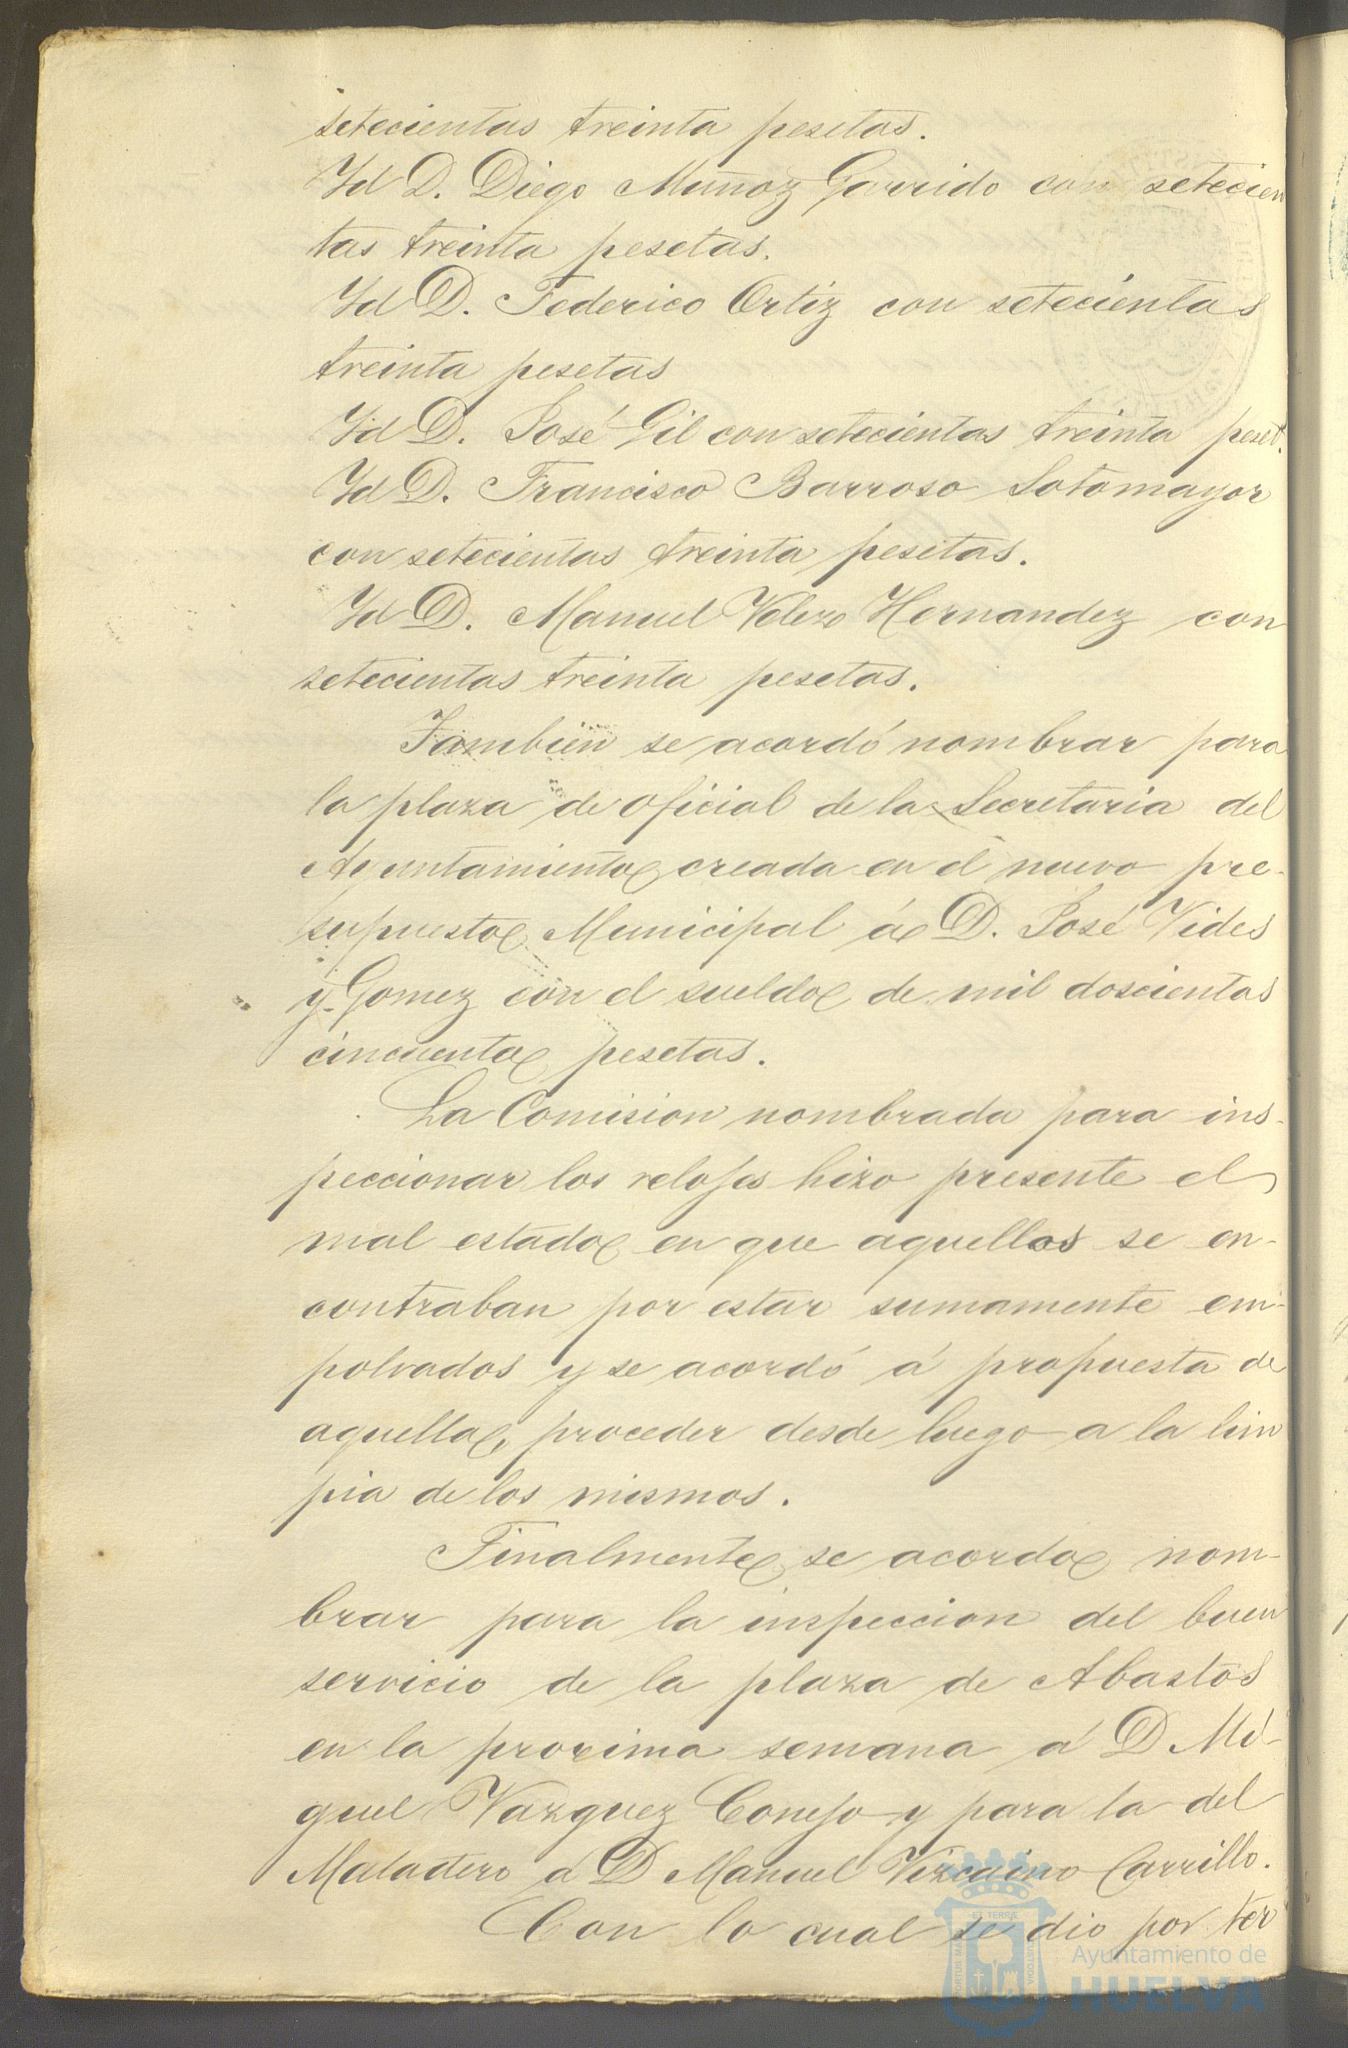 setecientas treinta pesetas.
Yd D. Diego Muñoz Garrido con setecien
tas treinta pesetas.
Yd D. Federico Ortiz con setecientas
treinta pesetas
Yd D. José Gil con setecientas treinta peset.
Yd D. Francisco Barroso Sotomayor
con setecientas treinta pesetas.
Yd D. Manuel Velezo Hernandez con
setecientas treinta pesetas.
Tambien se acordó nombrar para
la plaza de oficial de la Secretaria del
Ayuntamiento, creada en el nuevo pre-
supuesto Municipal á D. José Vides
y Gomez con el sueldo de mil doscientas
cincuenta pesetas.
La Comision nombrada para ins-
peccionar los relojes hizo presente el
mal estado en que aquellos se en-
contraban por estar sumamente em-
polvados y se acordó á propuesta de
aquella, proceder desde luego a la lim
pia de los mismos.
Finalmente se acordo nom-
brar para la inspeccion del buen
servicio de la plaza de Abastos
en la proxima semana á D Mi-
guel Vazquez Conejo y para la del
Matadero á D Manuel Vizcaino Carrillo.
Con lo cual se dio por ter
Ayuntamiento de
HUELVA